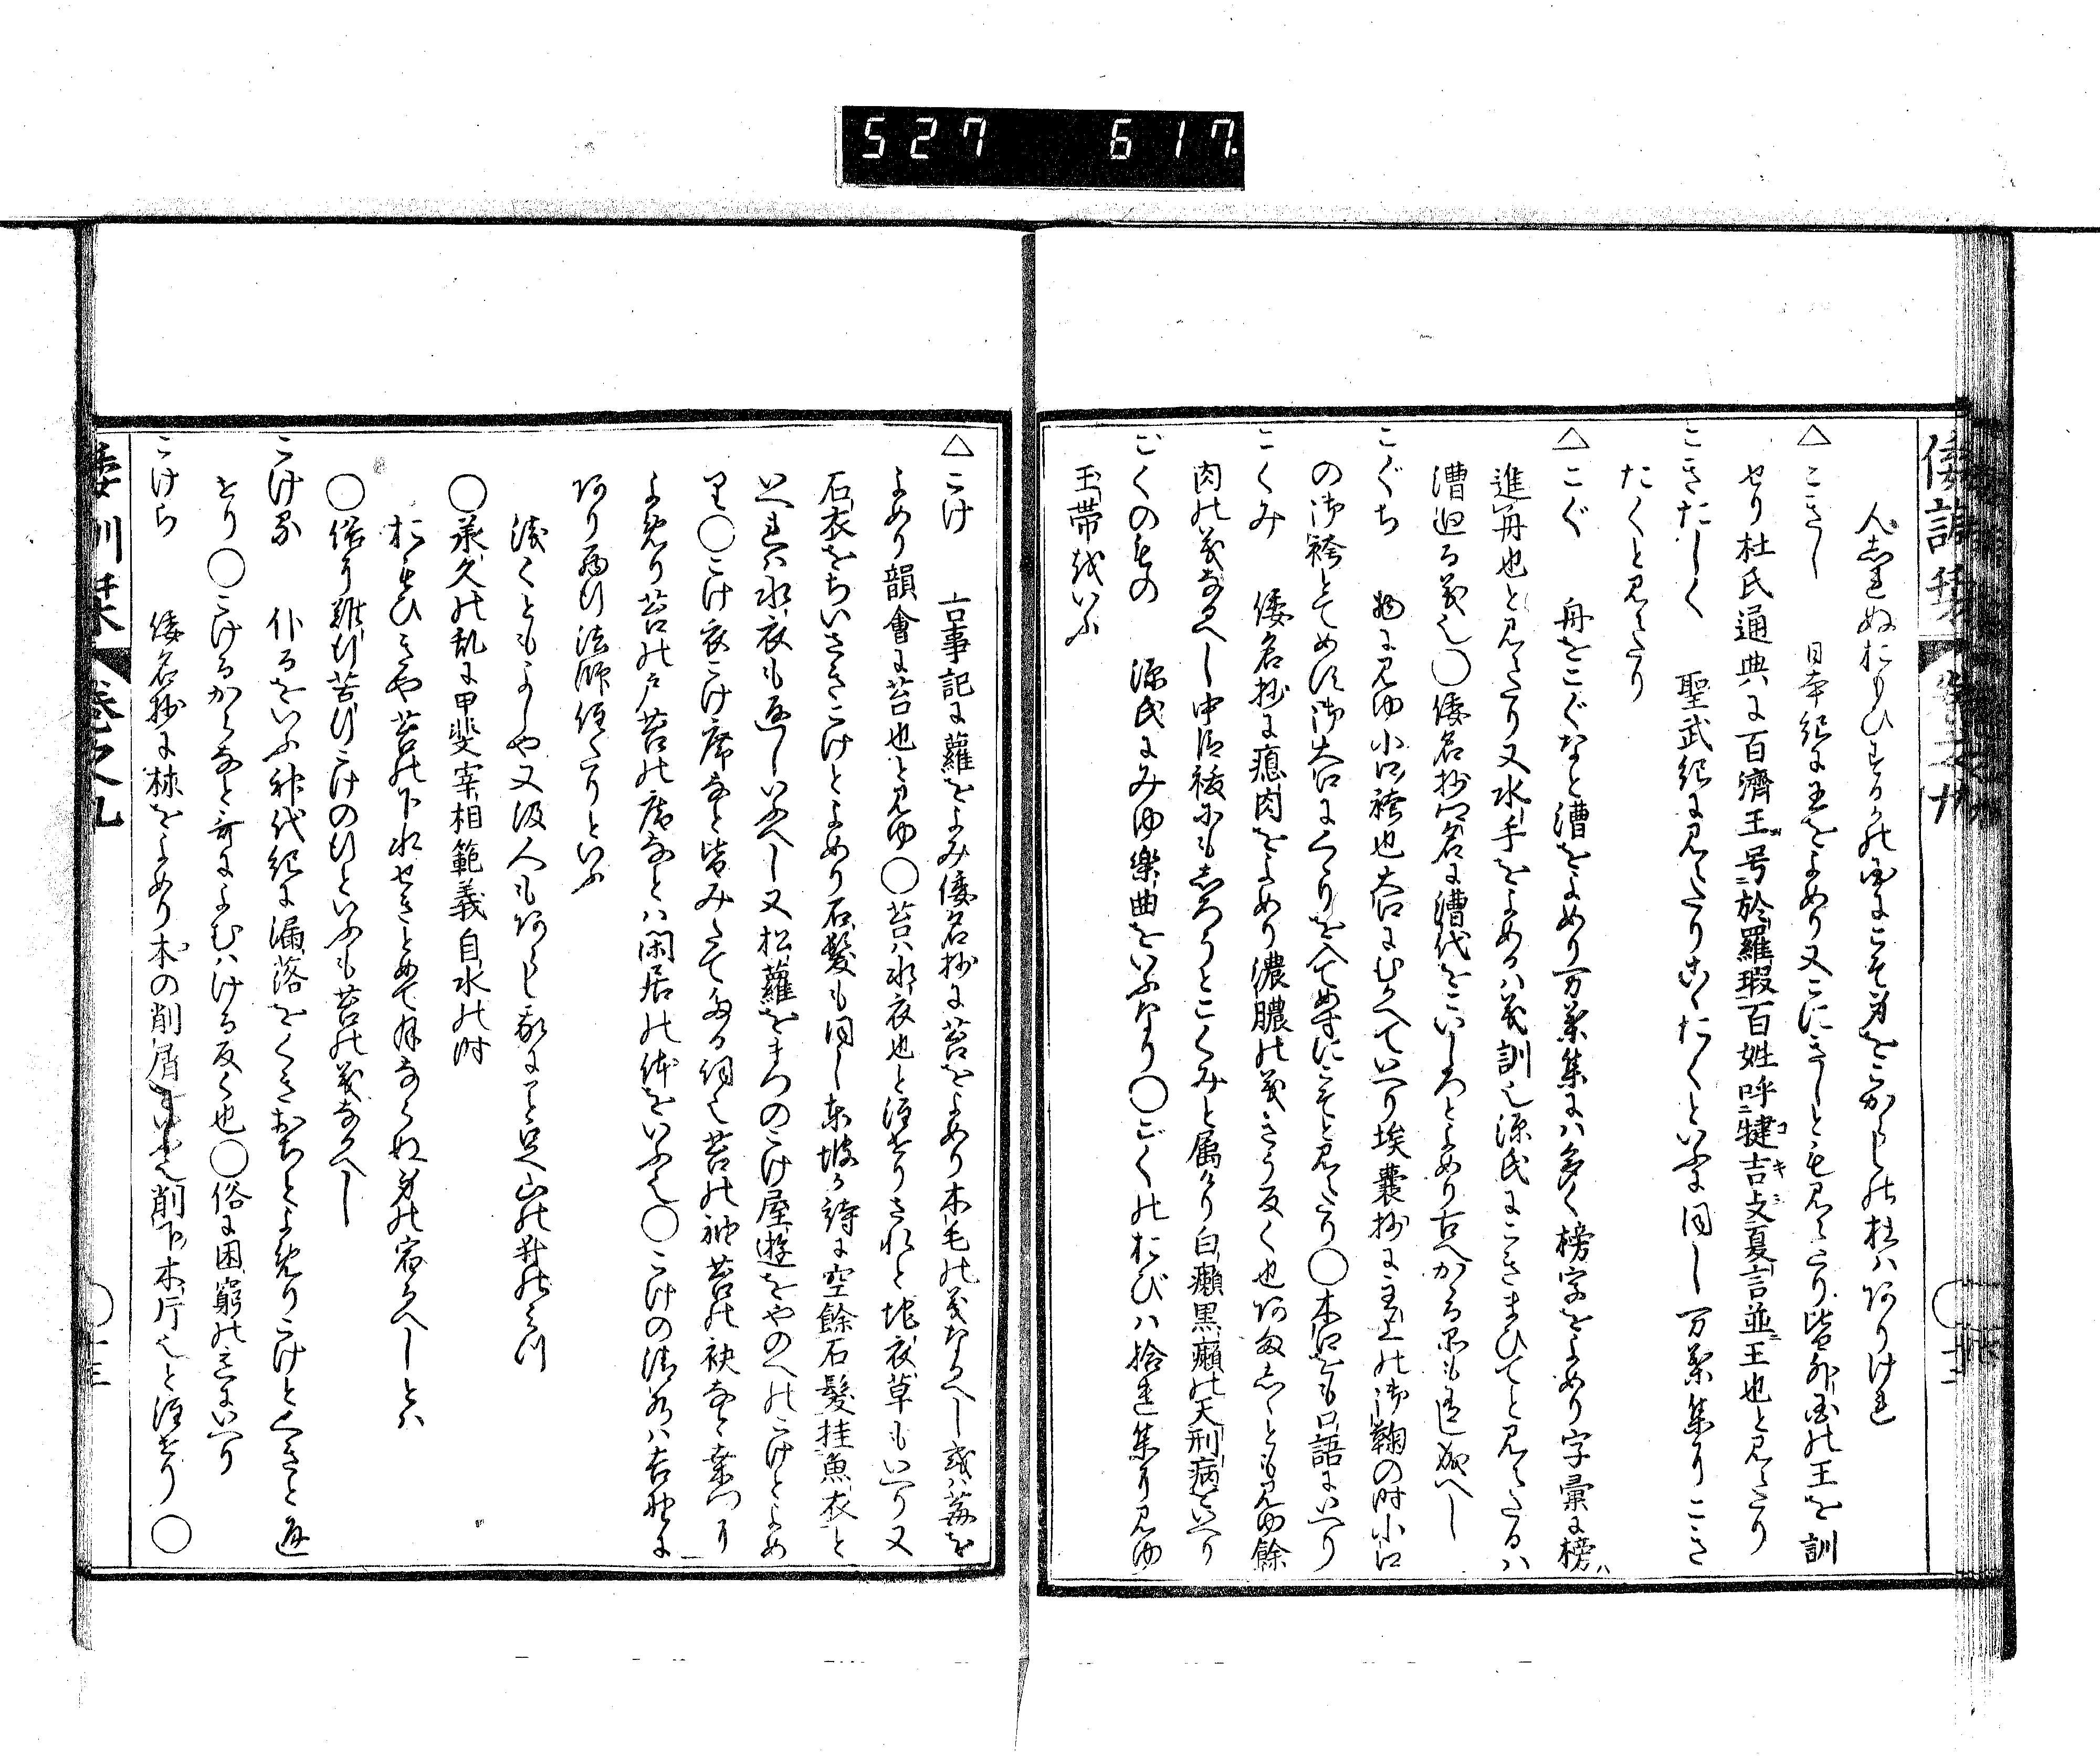 527 617.
人しれぬおもひするかの国にこそ身をこがらしの杜はありけれ
△こきし 日本紀に王をよめり又こにきしとも見えたり皆外国の王を訓
せり杜氏通典に百済王号於羅瑕百姓呼鞬吉支夏言並王也と見えたり
こきたしく 聖武紀に見えたりこゝたくといふに同し万葉集にこき
たくと見えたり
△こぐ 舟をこぐなと漕をよめり万葉集には多く榜字をよめり字彙に榜ハ
進舟也と見えたり又水手をよめるハ義訓也源氏にこきまひてと見えたるハ
漕廻る義也○倭名抄郡名に漕代をこいしろとよめり古へかゝる
こぐち 物に見ゆ小口袴也大口にむかへていへり埃嚢抄に主上の御鞠の時小口
の御袴とてめす御大口にくゝりを入てめすにこそと見えたり○木口をも口語にいへり
こくみ 倭名抄に瘜肉をよめり濃膿の義きう反く也あましゝとも見ゆ餘
肉の義なるへし中臣祓にも しろうとこくみと属けり白癩黒癩の天刑病といへり
ごくのもの 源氏にみゆ楽曲をいふなり○ごくのおびハ拾遺集に見ゆ
玉帯をいふ
△こけ 古事記に蘿をよみ倭名抄に苔をよめり木毛の義なるへし或ハ苺を
よめり韻會に苔也と見ゆ○苔ハ水衣也と注せりされと地衣草もいへり又
石衣をちいさきこけとよめり石髪も同し東坡か詩に空餘石髪挂魚衣と
いへれハ水衣も通しいふへし又松蘿をまつのこけ屋遊をやのへのこけとよめ
り○こけ衣こけ席なと皆みたてたる詞也苔の袖苔の袂なと葉つり
よめり苔の戸苔の庵なとハ閑居の体をいふ也○こけの清水ハ吉野に
あり西行法師住たりといふ
浅くともよしや又汲人もあらし我にことたる山の井の水
○承久の乱に甲斐宰相範義自水の時
おもひきや苔の下水せきとめて月ならぬ身の宿るへしとハ
○俗に雛び苔びこけのびといふも苔の義なるへし
こける 仆るをいふ神代紀に漏落をくきおちとよめりこけとくきと通
せり○こけるからなと哥によむハける反く也○俗に困窮の意にいへり
こけら 倭名抄に柹をよめり木の削屑をいふ也削下木片也と注せり○
倭訓栞 巻之九 ○十三